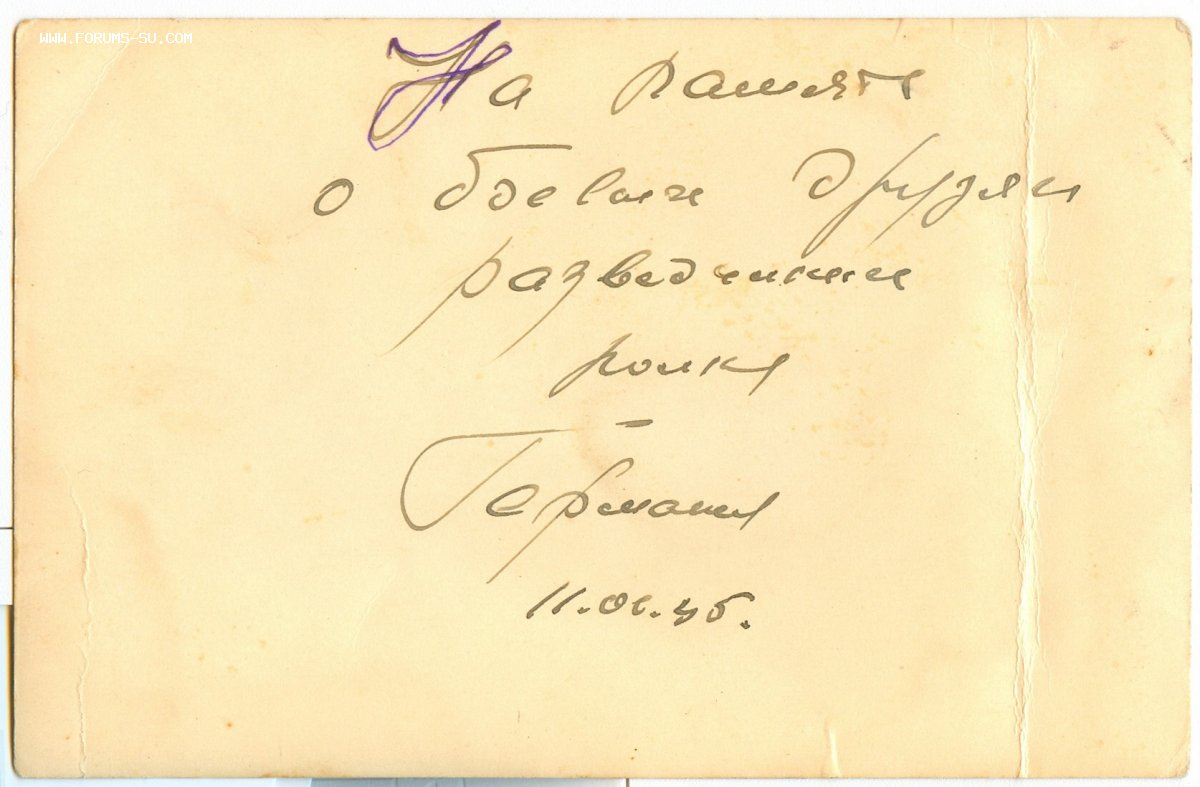 WWW.FORUMS-SU.COM
На память
о боевых друзях
разведчиках
полка
Германия